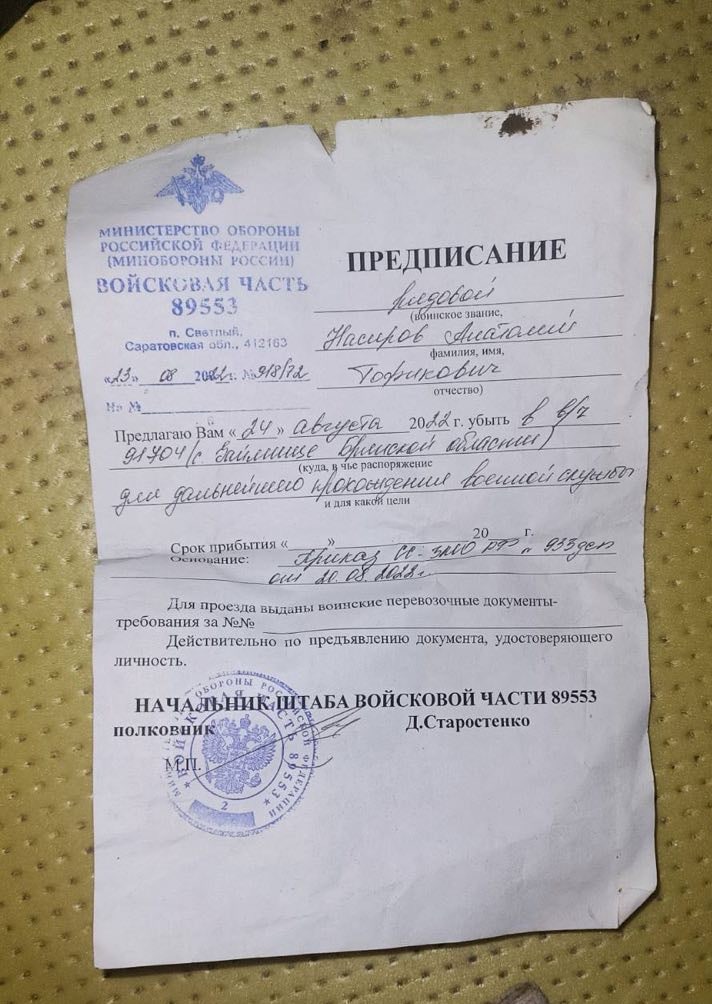 МИНИСТЕРСТВО ОБОРОНЫ
РОССИЙСКОЙ ФЕДЕРАЦИИ
(МИНОБОРОНЫ РОССИИ)
ВОЙСКОВАЯ ЧАСТЬ
89553
п. Светлый,
Саратовская обл., 412163
«23» 08 2022 г. № 918/72
На №
ПРЕДПИСАНИЕ
рядовой
(воинское звание,
Насиров Анатолий
фамилия, имя,
Тофикович
отчество)
Предлагаю Вам « 24 » августа 2022 г. убыть в в/ч
91704 (с. Займище Брянской области)
(куда, в чье распоряжение
для дальнейшего прохождения военной службы
и для какой цели
Срок прибытия « » 20 г.
Основание: Приказ ЗМО РФ 933
от 20.08.2022г.
Для проезда выданы воинские перевозочные документы-
требования за №№
Действительно по предъявлению документа, удостоверяющего
личность.
НАЧАЛЬНИК ШТАБА ВОЙСКОВОЙ ЧАСТИ 89553
полковник Д.Старостенко
М.П.
ОБОРОНЫ РОССИЙСКОЙ ФЕДЕРАЦИИ
ВОЙСКОВАЯ ЧАСТЬ 89553
2